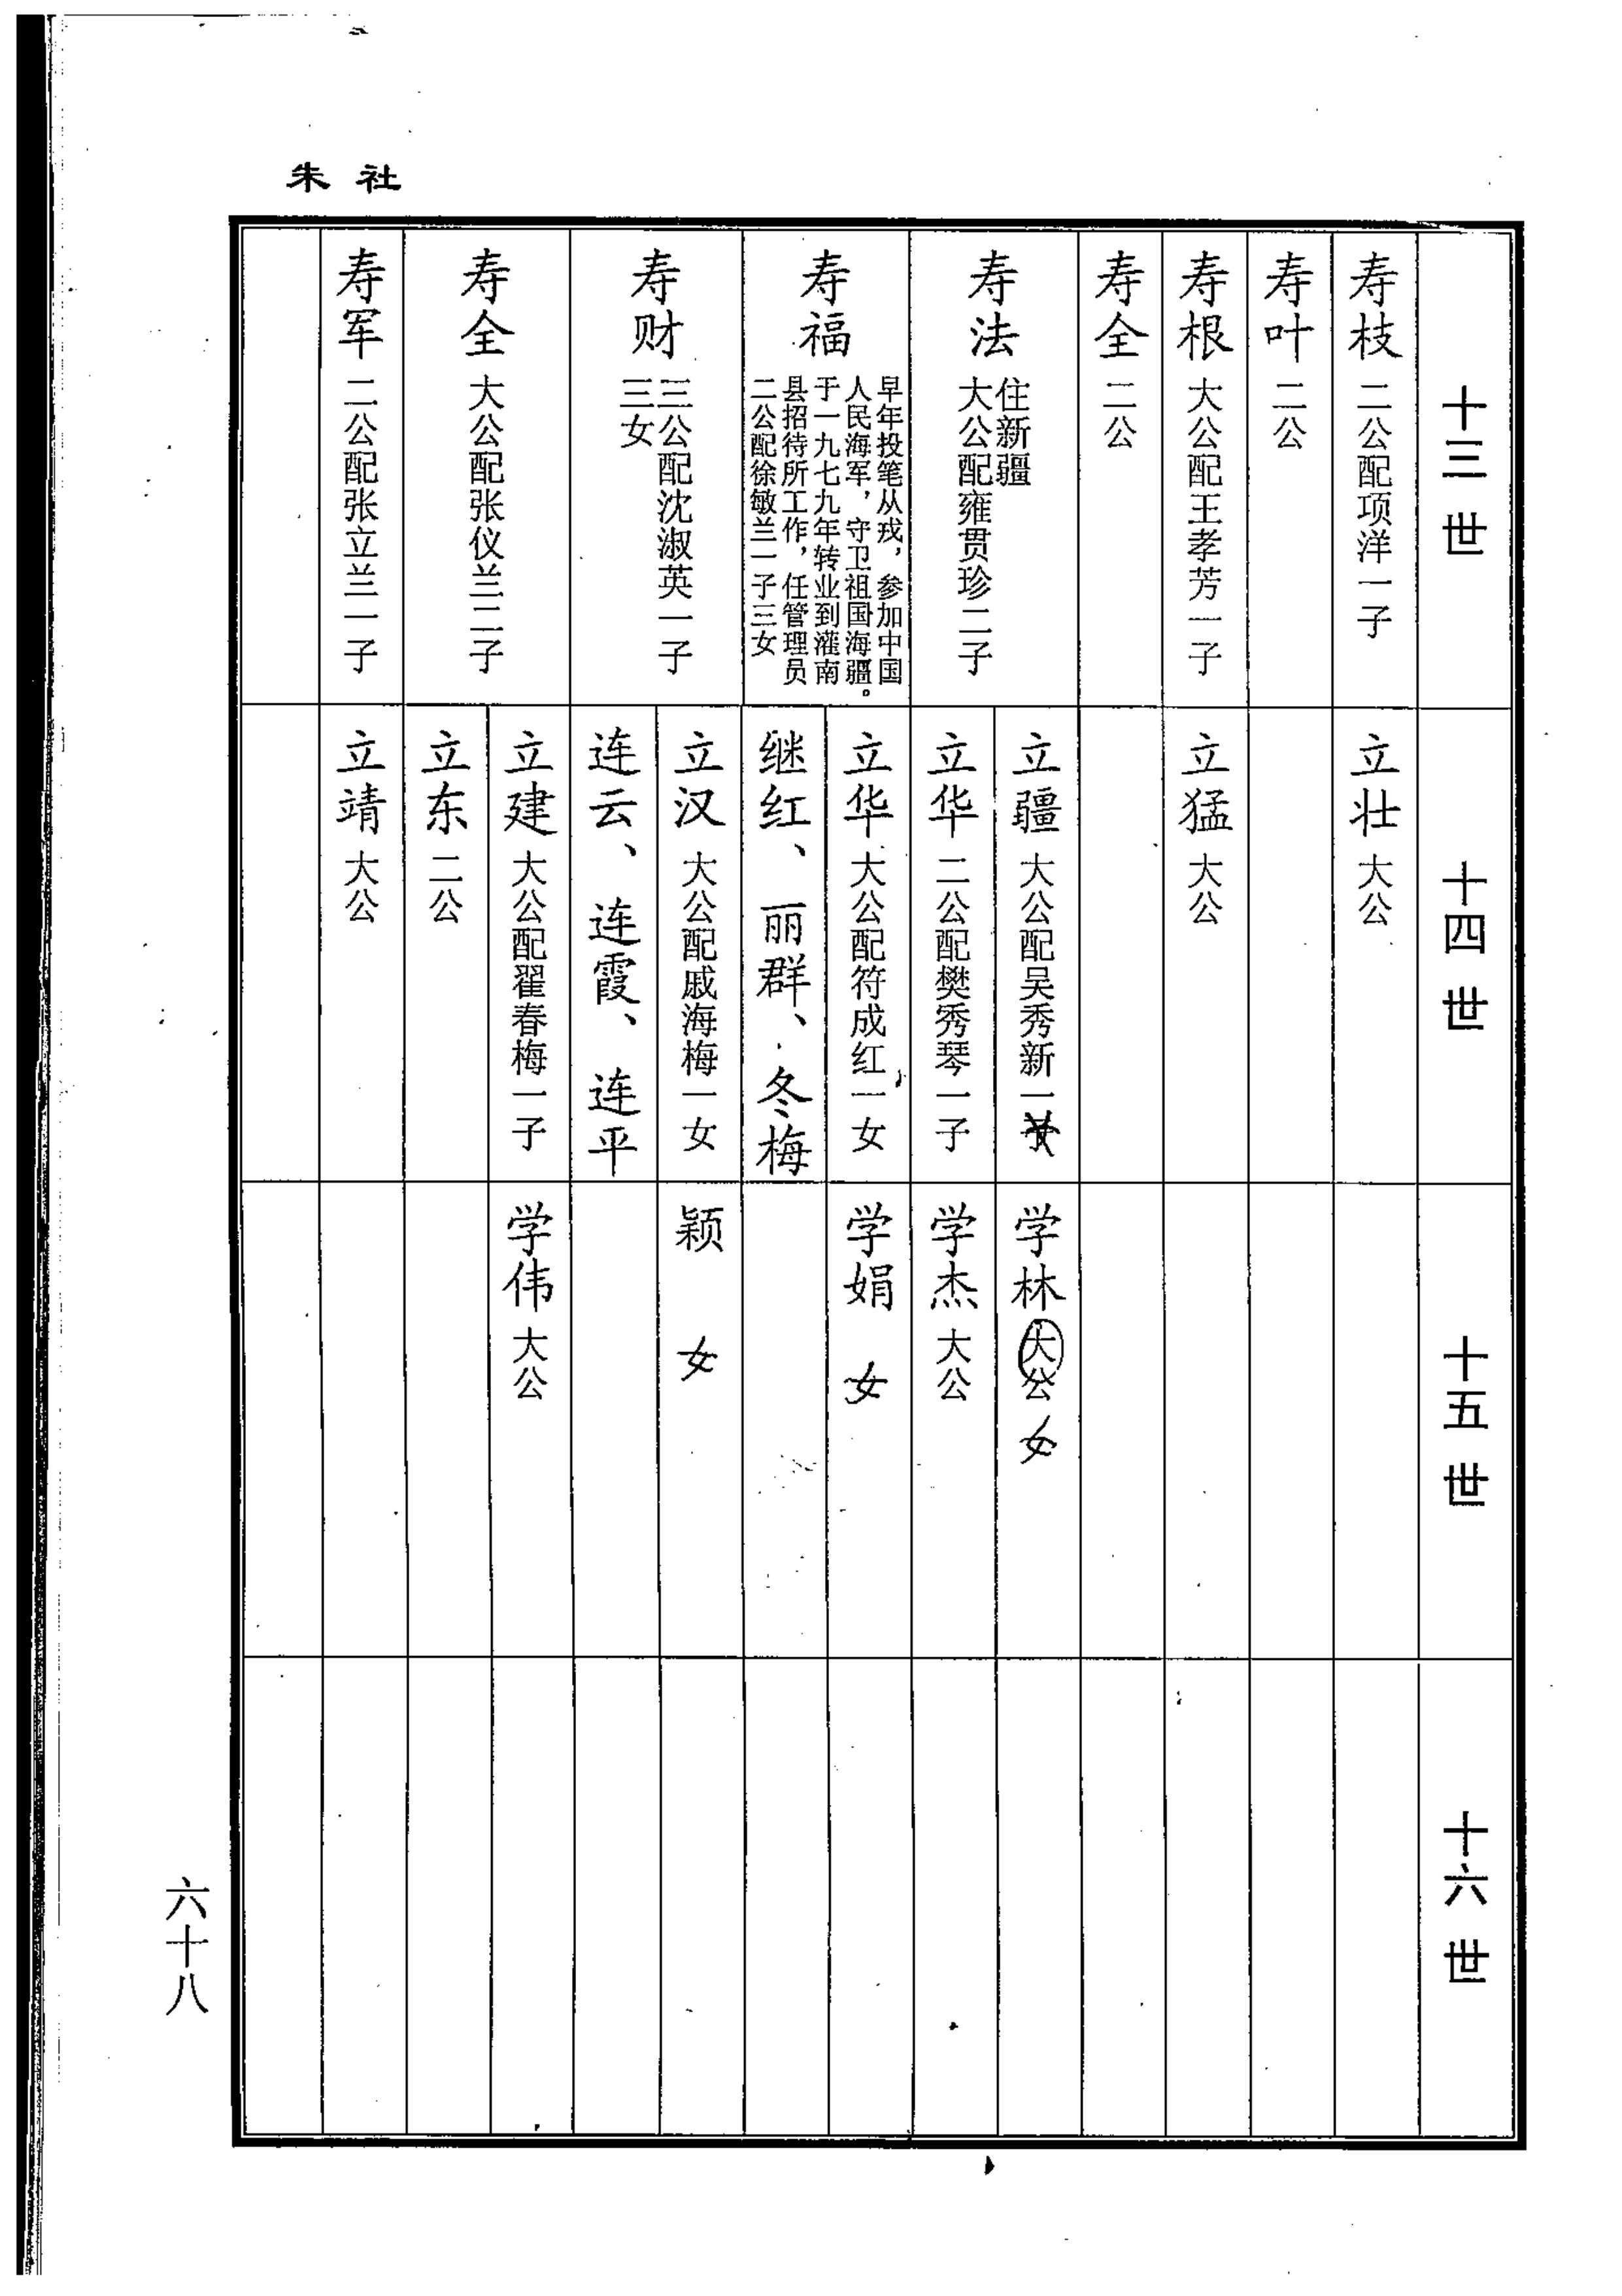 朱社
十三世
十四世
十五世
十六世
寿枝 二公配项洋一子
立壮 大公
寿叶 二公
寿根 大公配王孝芳一子
立猛 大公
寿全 二公
寿法 住新疆
大公配雍贯珍二子
立疆 大公配吴秀新一女
学林 大公 女
立华 二公配樊秀琴一子
学杰 大公
寿福 早年投笔从戎，参加中国
人民海军，守卫祖国海疆。
于一九七九年转业到灌南
县招待所工作，任管理员
二公配徐敏兰一子三女
立华 大公配符成红一女
学娟 女
继红、丽群、冬梅
寿财 三公配沈淑英一子
三女
立汉 大公配戚海梅一女
颖 女
连云、连霞、连平
寿全 大公配张仪兰二子
立建 大公配翟春梅一子
学伟 大公
立东 二公
寿军 二公配张立兰一子
立靖 大公
六十八